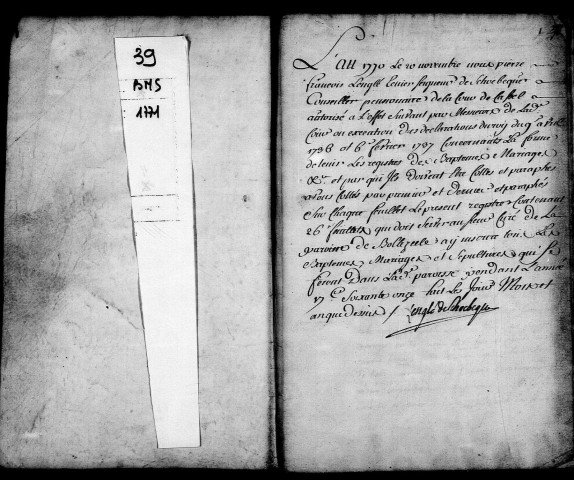 39
BMS
1771
L'an 1770 le 20 novembre nous pierre
francois Lenglé Ecuier seigneur de Schoebeque
Conseiller pensionnaire de la Cour de Cassel
autorisé a L'effet suivant par Messieurs de Lad.
Cour en execution des declarations du roy du 9 avril
1736 et 6 fevrier 1737 Concernants La forme
de tenir Les registres de Baptemes Mariages
&c. et par qui Ils doivent etre Cottés et paraphés
avons Cottés par premier et dernier et paraphés
sur chaque feuillet Le present registre Contenant
26 feuillets qui doit servir au sieur Curé de La
paroisse de Bollezeele a y inscrire tous Les
Baptemes Mariages et sepultures qui se
feront Dans Lad. paroisse pendant L'année
17 C. soixante onze fait Les Jour Mois et
an que dessus / Lenglé de Schoebeque